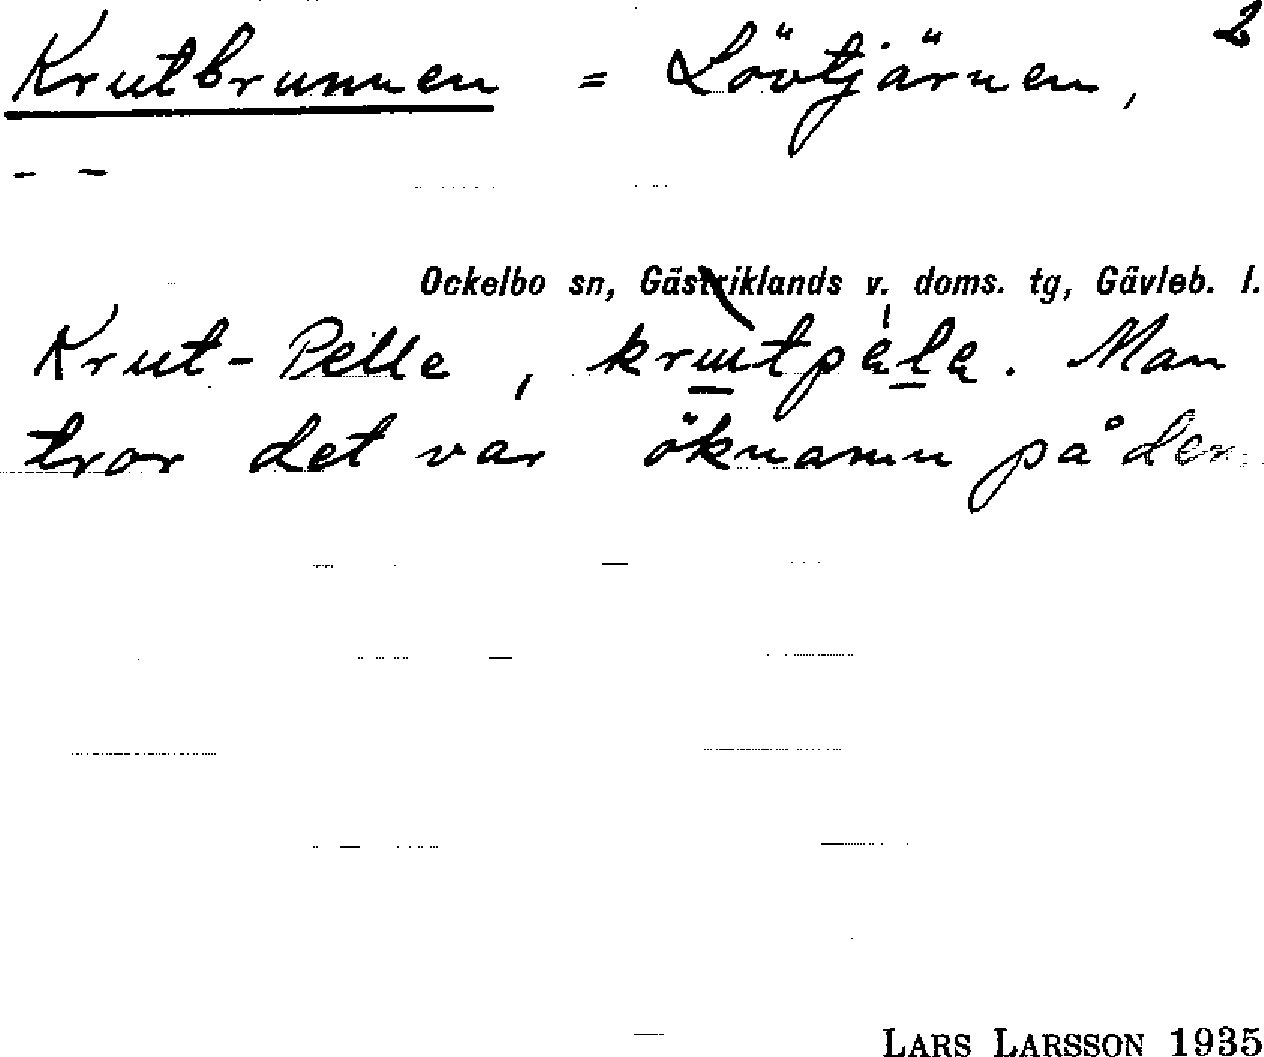 2
Krutbrunnen = Lövtjärnen,
- -
Ockelbo sn, Gästriklands v. doms. tg, Gävleb. l.
Krut-Pelle, Man
tror det var öknamn på den
LARS LARSSON 1935